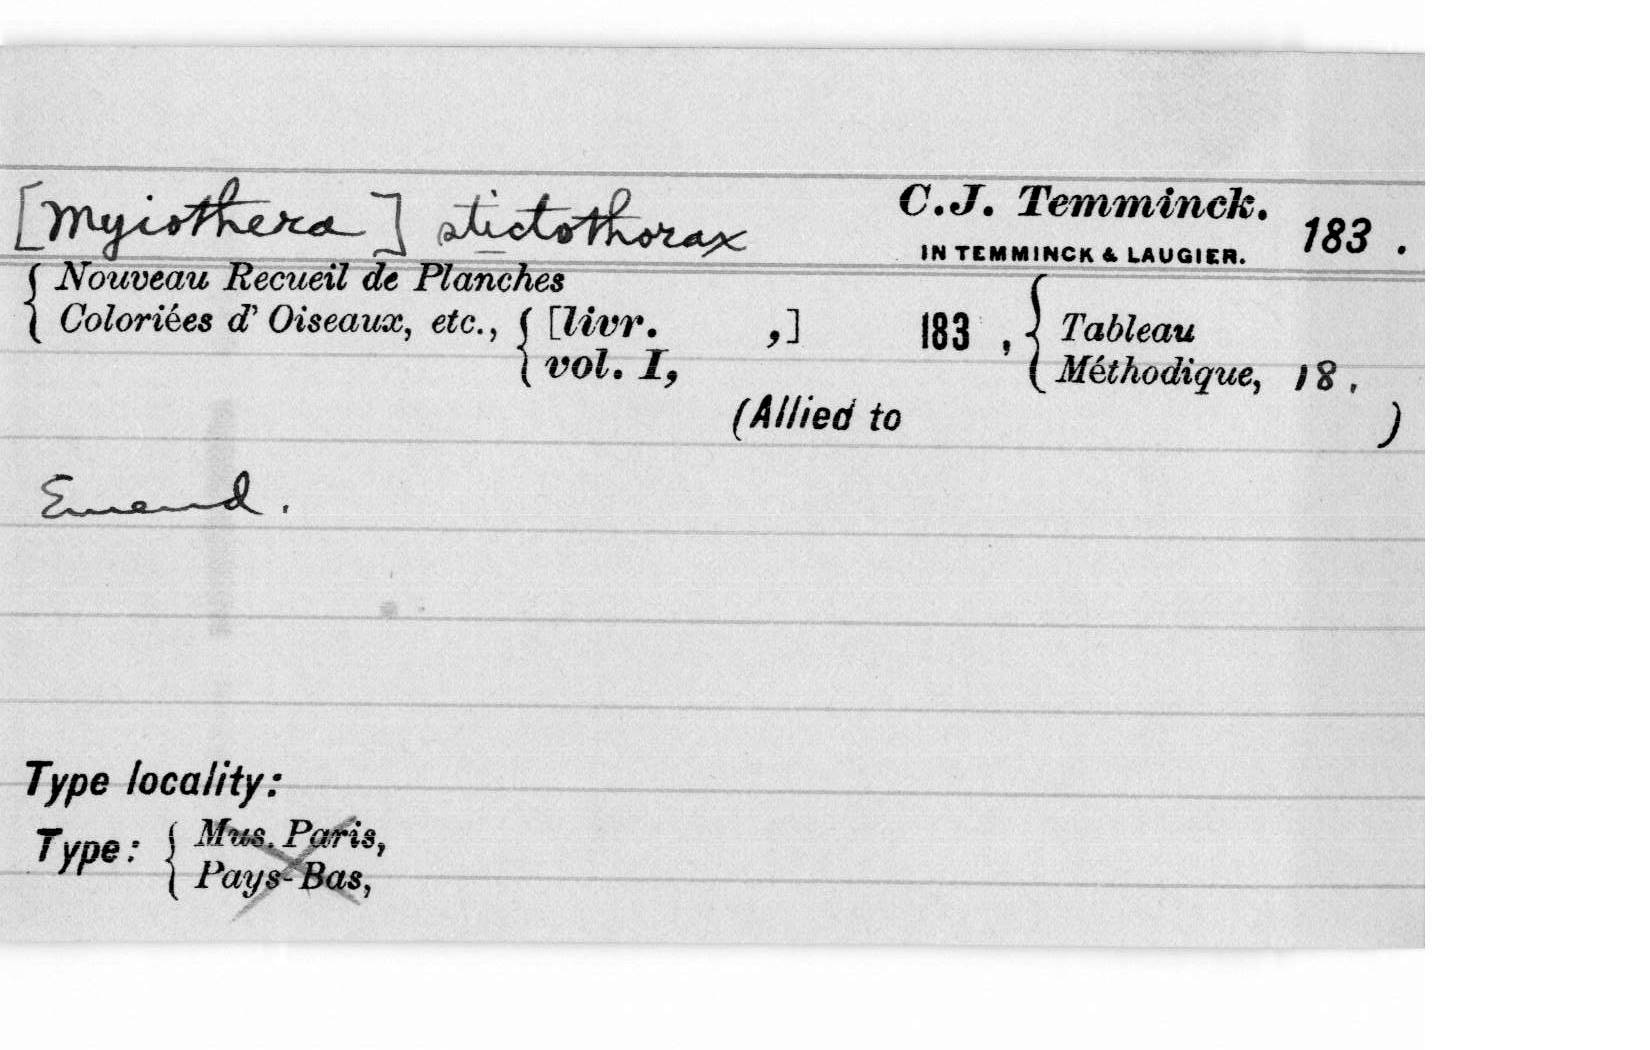 [Myiothera] stictothorax C.J. Temminck. 183 .
IN TEMMINCK & LAUGIER.
Nouveau Recueil de Planches
Coloriées d' Oiseaux, etc., [livr. ,] 183 , Tableau
vol. I, Méthodique, 18 .
(Allied to )
Emend.
Type locality:
Type: Mus. Paris,
Pays-Bas,